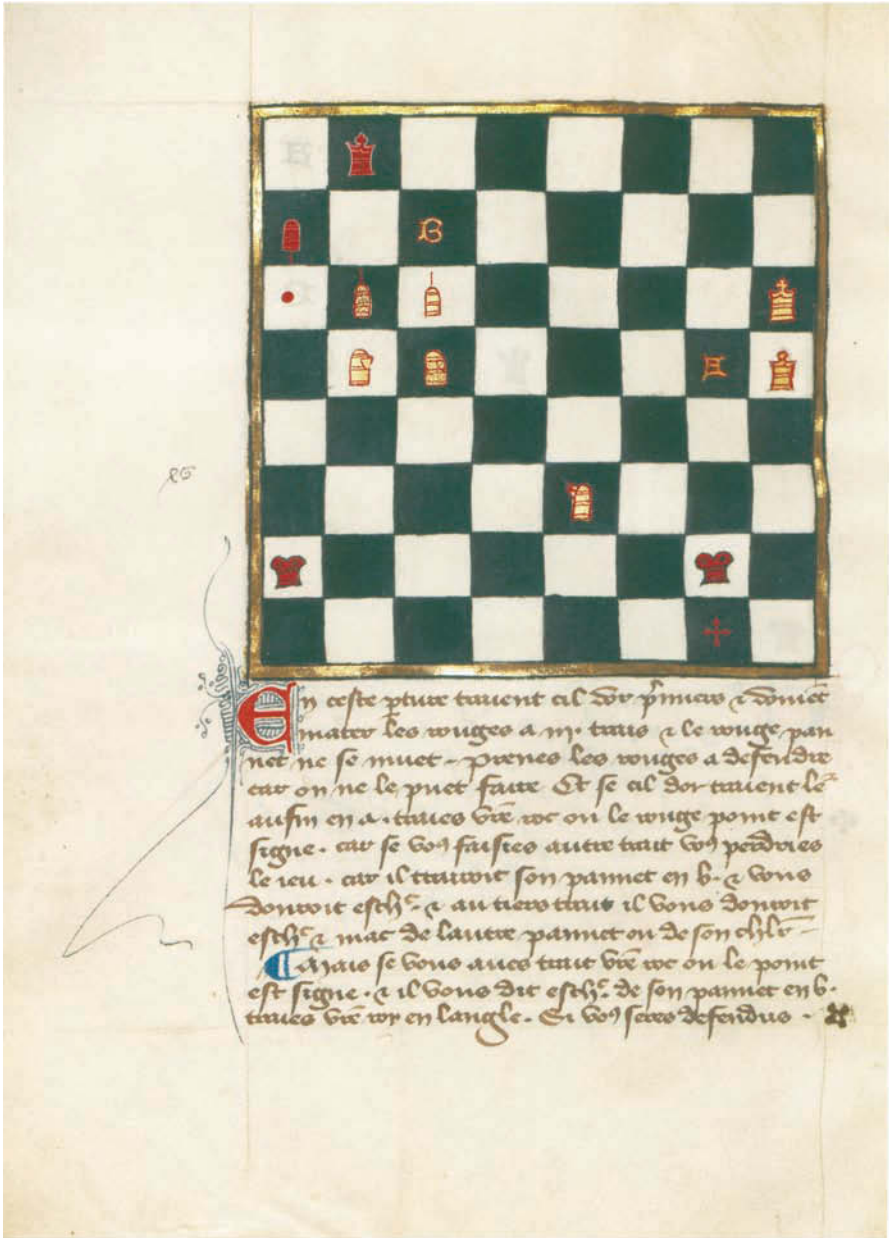 B
A
En ceste pture traient cil dor pmiers & doiuet
mater les rouges a iiij trais & le rouge pan
net ne se muet prenes les rouges a defendre
car on ne le puet faire Et se cil dor traient le
aufin en a. traies vre roc ou le rouge point est
signe. car se vos faisies autre trait vos perdries
le ieu. car il trairoit son pannet en b. & vous
donroit esch. & au tiers trait il vous donroit
esch & mat de lautre pannet ou de son chlr
Mais se vous aues trait vre roc ou le point
est signe. & il vous dit esch. de son pannet en b.
traies vre roy en langle. Si vos seres defendus.